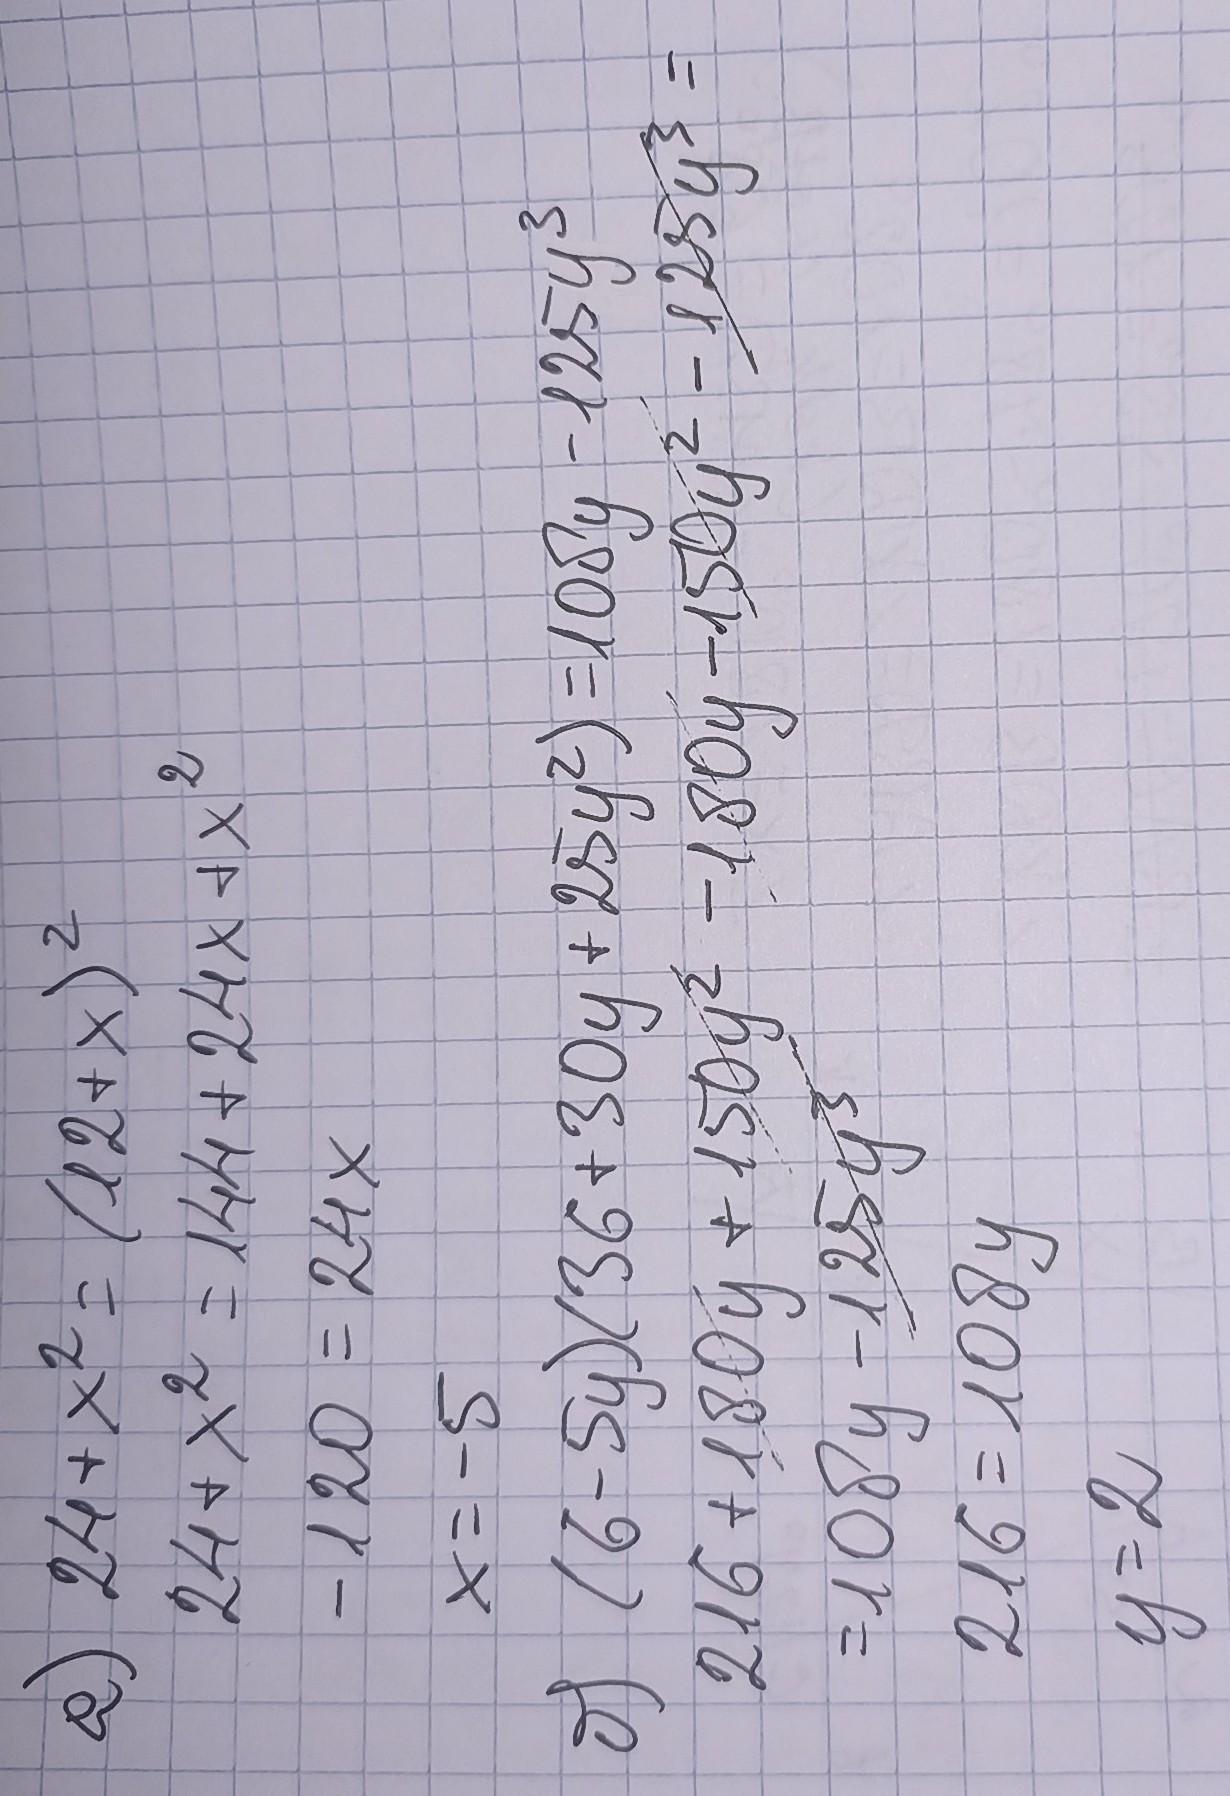 а) 24+x²=(12+x)²
24+x²=144+24x+x²
-120=24x
x=-5
б) (6-5y)(36+30y+25y²)=108y-125y³
216+180y+150y²-180y-150y²-125y³=
=108y-125y³
216=108y
y=2